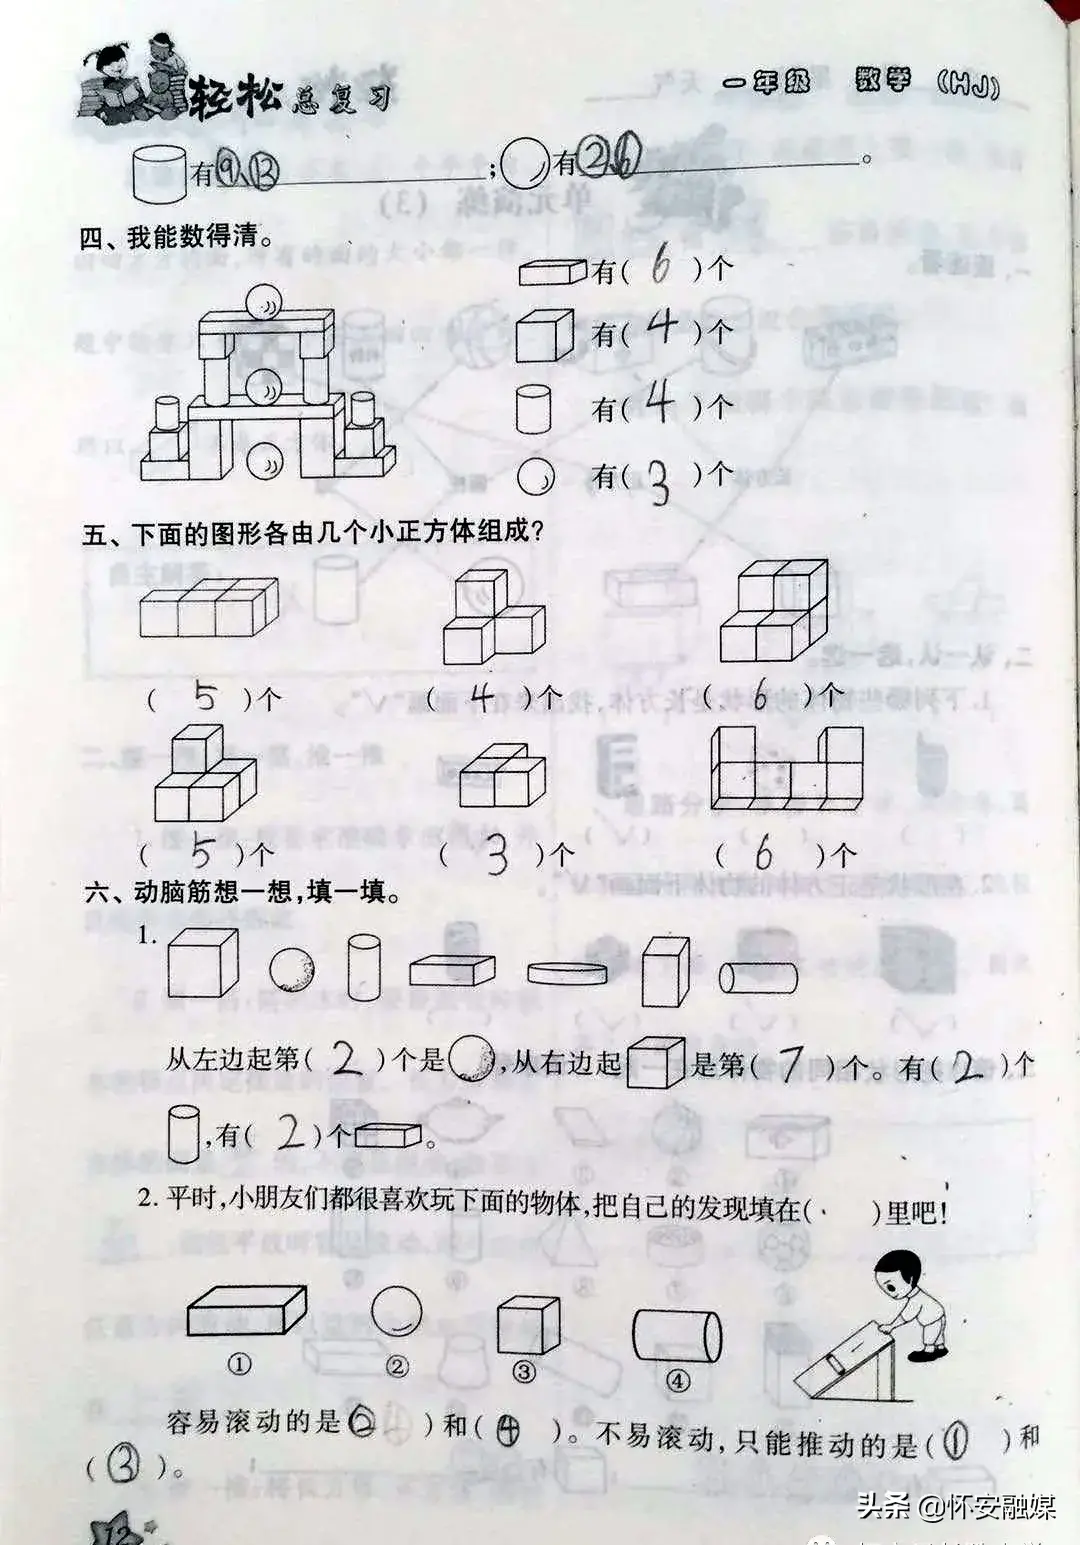 轻松总复习 一年级 数学 (HJ)
有⑨、⑬;有②、⑥。
四、我能数得清。
有( 6 )个
有( 4 )个
有( 4 )个
有( 3 )个
五、下面的图形各由几个小正方体组成?
( 5 )个 ( 4 )个 ( 6 )个
( 5 )个 ( 3 )个 ( 6 )个
六、动脑筋想一想,填一填。
1.
从左边起第( 2 )个是,从右边起是第( 7 )个。有( 2 )个
,有( 2 )个。
2. 平时,小朋友们都很喜欢玩下面的物体,把自己的发现填在( )里吧!
① ② ③ ④
容易滚动的是(② )和( ④ )。不易滚动,只能推动的是( ① )和
( ③ )。
12
头条 @怀安融媒